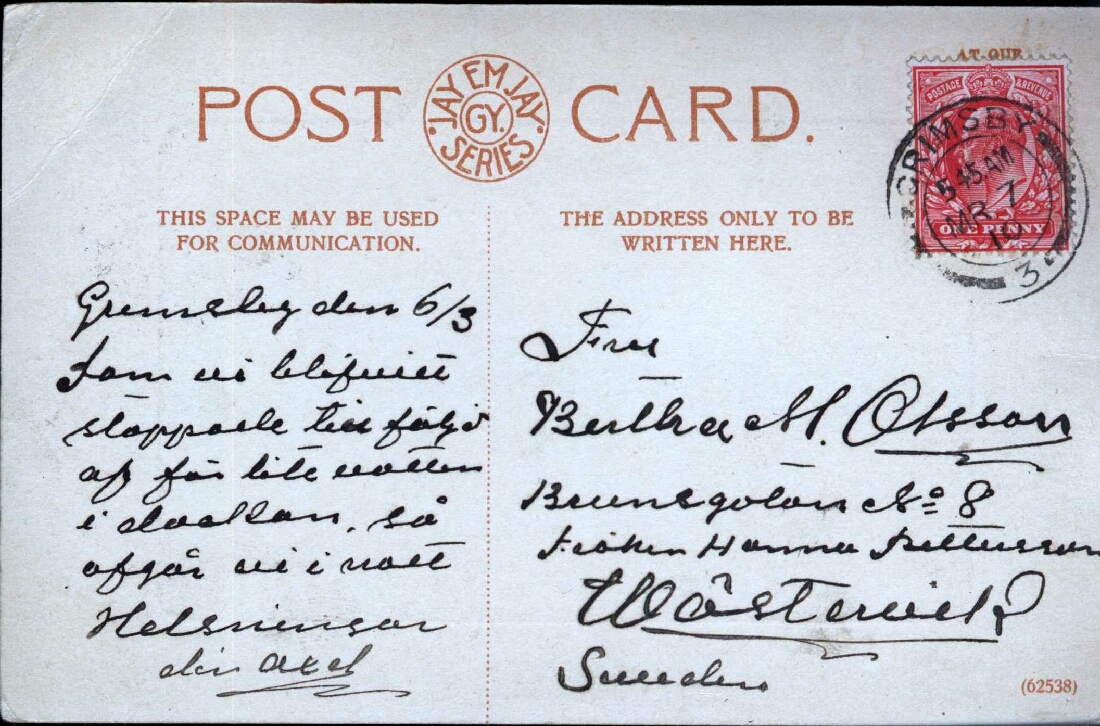 AT OUR
POST CARD.
JAY EM JAY
GY.
SERIES
POSTAGE & REVENUE
GRIMSBY
5 45 AM
MR 7
10
3
ONE PENNY
THIS SPACE MAY BE USED
FOR COMMUNICATION.
THE ADDRESS ONLY TO BE
WRITTEN HERE.
Grimsby den 6/3
Som vi blifvitt
stoppade till följd
af för lite vatten
i dockan, så
afgår vi i natt
Helsningar
din Axel
Fru
Bertha M. Olsson
Brunsgatan No 8
Fröken Hanna Pettersson
Wästervik
Sweden
(62538)